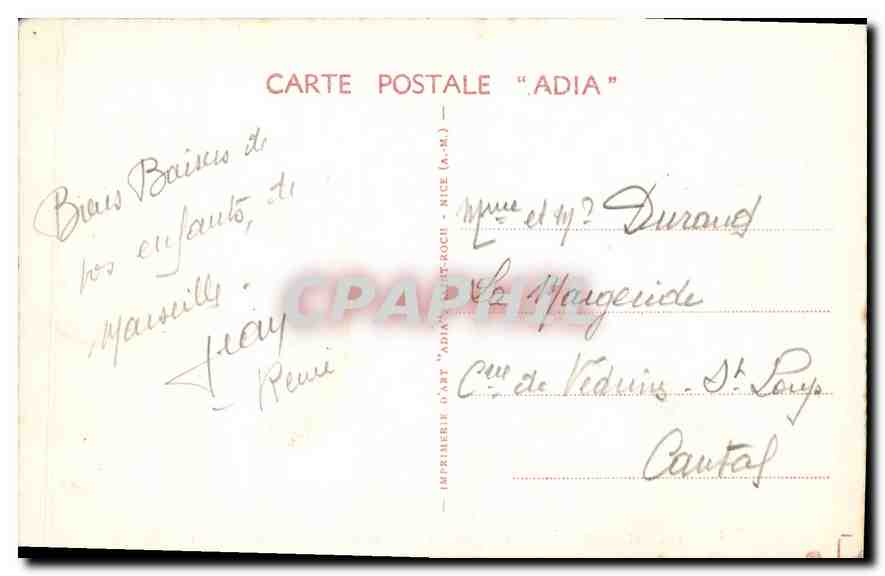 CARTE POSTALE "ADIA"
Bons Baisers de
vos enfants, de
Marseille.
Jean
- René
IMPRIMERIE D'ART "ADIA" ST-ROCH - NICE (A.-M.)
CPAPHIL
Mme et Mr Durand
La Margeride
Cne de Védrines-St Loup
Cantal